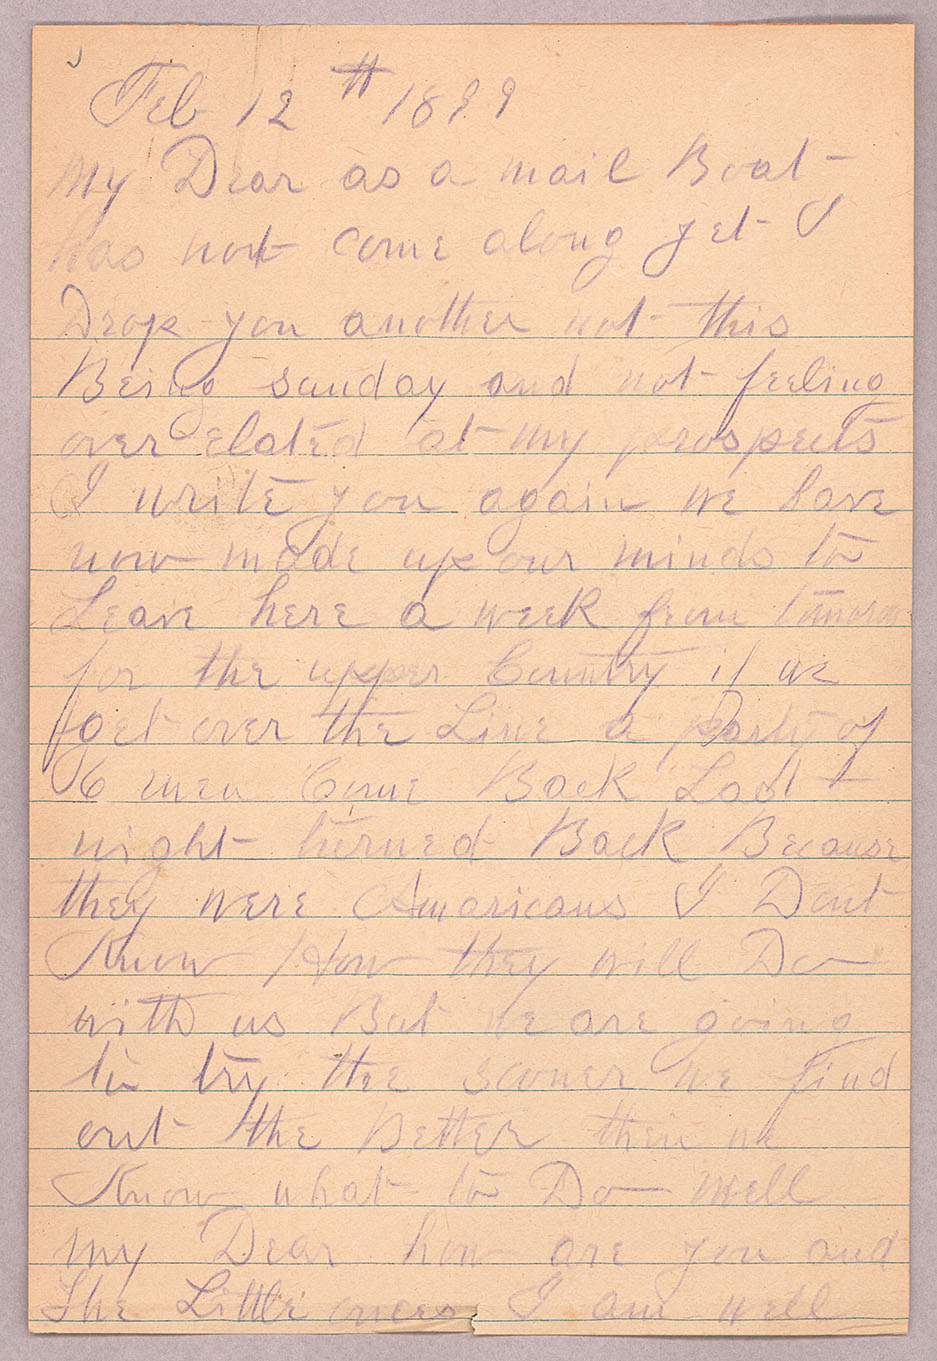 Feb 12th 1899
My Dear as a mail Boat
has not come along yet I
Drop you another not this
Being sunday and not feeling
over elated at my prospects
I write you again we have
now made up our minds to
Leave here a week from tomorow
for the upper Country if we
get over the Line a party of
6 men Came Back Last
night turned Back Because
they were Amaricans I Dont
Know How they will Do
with us But we are going
to try the sooner we find
out the Better then we
Know what to Do well
my Dear how are you and
The Little ones I am well